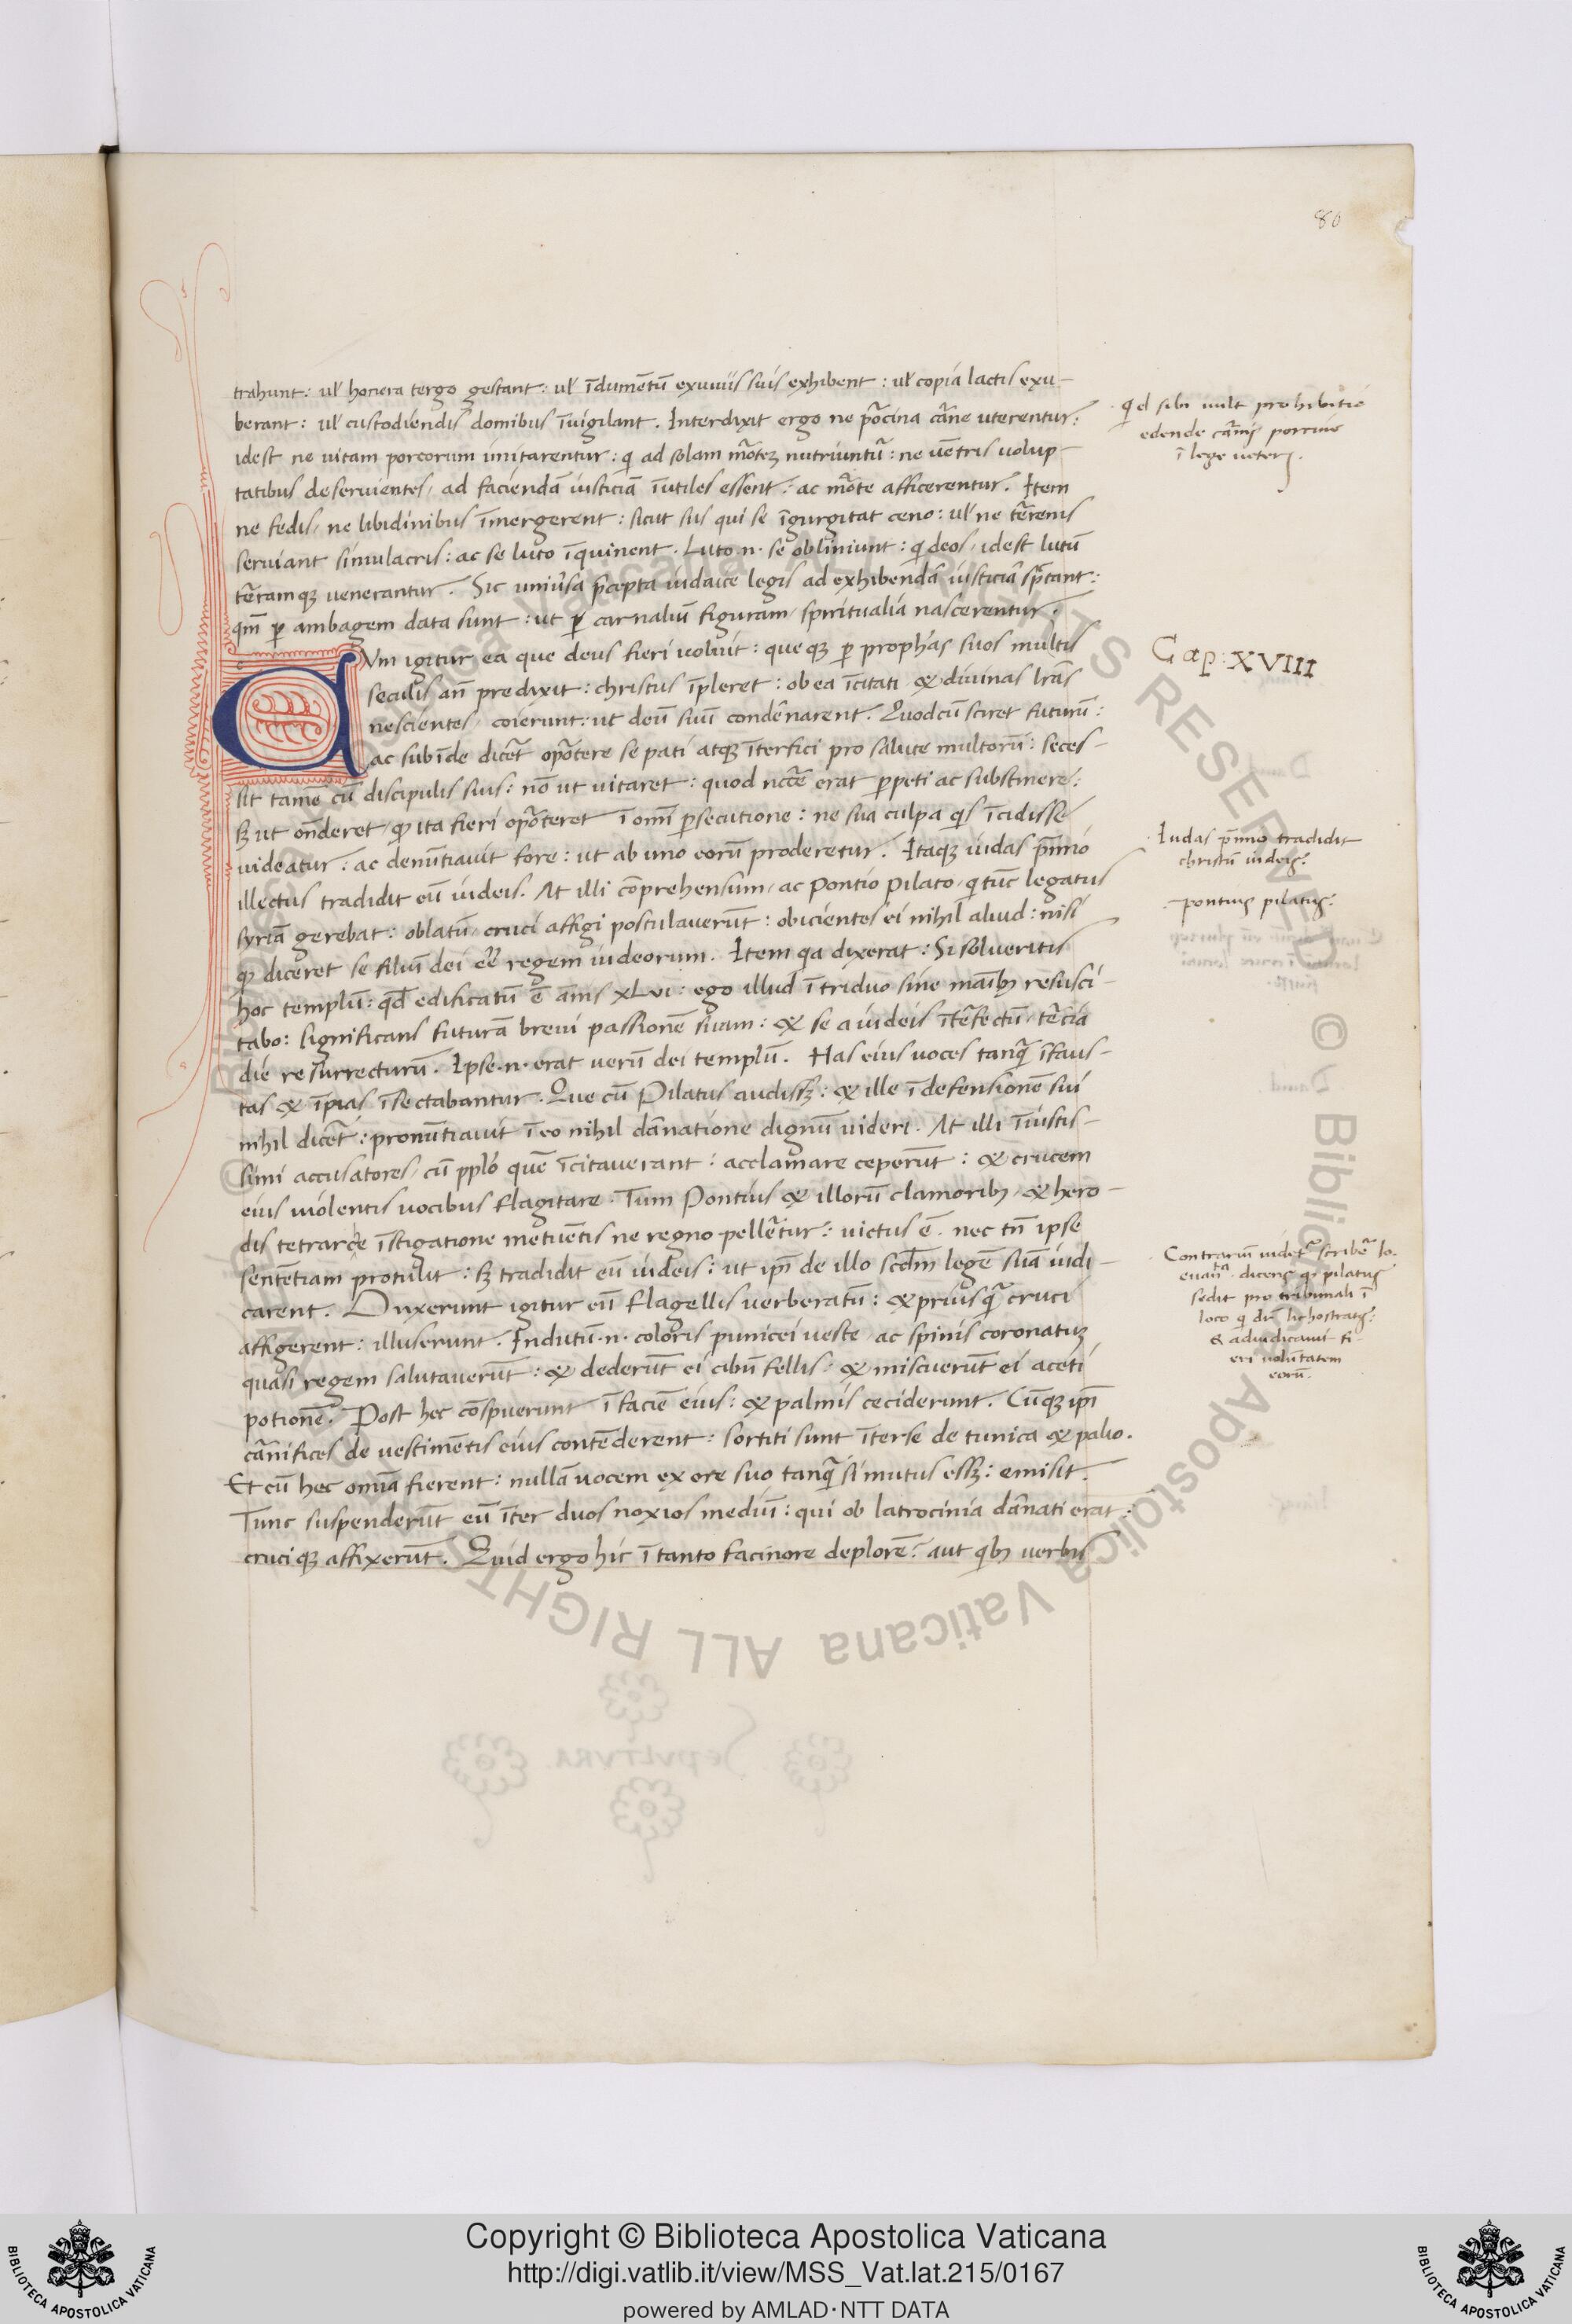 80
trahunt: ul' honera tergo gestant: ul' īdumētū exuuiis suis exhibent: ul' copia lactis exu-
berant: ul' custodiendis domibus īuigilant. Interdixit ergo ne p̄ocina cāne uterentur:
idest ne uitam porcorum imitarentur: q̄ ad solam mōtez nutriuntū: ne uētris uolup-
tatibus deseruientes, ad faciendā iusticiā īutiles essent: ac mōte afficerentur. Item
ne fedis, ne libidinibus īmergerent: sicut sus qui se īgurgitat ceno: ul' ne tērenis
seruiant simulacris: ac se luto īquinent. Luto .n. se obliniunt: q̄ deos, idest lutū
tēramqȝ uenerantur. Sic uniūsa p̄cepta iudaice legis ad exhibendā iusticiā sp̄tant:
qm̄ ꝑ ambagem data sunt: ut ꝑ carnaliū figuram, spiritualia nascerentur.
CVm igitur ea que deus fieri uoluit: queqȝ ꝑ prophās suos multis
seculis an̄ predixit: christus īpleret: ob ea īcitati & diuinas lrās
nescientes, coierunt: ut deū suū condēnarent. Quodcū sciret futurū:
ac subīde dicēt opōtere se pati atqȝ īterfici pro salute multorū: seces-
sit tamē cū discipulis suis: nō ut uitaret: quod nccē erat ꝑpeti ac substinere:
sȝ ut on̄deret, qȝ ita fieri opōteret ī omī ꝑsecutione: ne sua culpa q̄s īcidisse
uideatur: ac denūtiauit fore: ut ab uno eorū proderetur. Itaqȝ iudas p̄mio
illectus tradidit eū iudeis. At illi cōprehensum, ac pontio pilato, q̄ tūc legatus
syriā gerebat: oblatū, cruci affigi postulauerūt: obicientes ei nihil aliud: nisi
qȝ diceret se filiū dei eē regem iudeorum. Item qa dixerat: Si solueritis
hoc templū: qd̄ edificatū ē ānis xLvi: ego illud ī triduo sine maībȝ resusci-
tabo: significans futurā breui passionē suam: & se a iudeis ītēfectū, tēcia
die resurrecturū. Ipse .n. erat uerū dei templū. Has eius uoces tanq̄ īfaus-
tas & īpias īsectabantur. Que cū Pilatus audissȝ: & ille ī defensionē sui
nihil dicēt: pronūtiauit ī eo nihil dānatione dignū uideri. At illi īiustis-
simi accusatores, cū pplō quē īcitauerant: acclamare ceperūt: & crucem
eius uiolentis uocibus flagitare. Tum Pontius & illorū clamoribȝ, & hero-
dis tetrarce īstigatione metuētis ne regno pellētur: uictus ē. nec tn̄ ipse
sentētiam protulit: sȝ tradidit eū iudeis: ut ip̄i de illo scdm̄ legē suā iudi-
carent. Duxerunt igitur eū flagellis uerberatū: & priusq̄ cruci
affigerent: illuserunt. Indutū .n. coloris punicei ueste, ac spinis coronatuȝ
quasi regem salutauerūt: & dederūt ei cibū fellis, & miscuerūt ei aceti
potionē. Post hec cōspuerunt ī faciē eius: & palmis ceciderunt. Cūqȝ ip̄i
cānifices de uestimētis eius contēderent: sortiti sunt īterse de tunica & palio.
Et cū hec omīa fierent: nullā uocem ex ore suo tanq̄ si mutus essȝ: emisit.
Tunc suspenderūt eū īter duos noxios mediū: qui ob latrocinia dānati erāt:
cruciqȝ affixerūt. Quid ergo hic ī tanto facinore deplorē: aut q̄bȝ uerbis
qd sibi uult prohibitio
edende cānis porcine
ī lege ueteri.
Cap: XVIII
Iudas p̄mio tradidit
christū iudeis:
pontius pilatus:
Contrariū uidet̄ scribē Io.
euanta. dicens qȝ pilatus
sedit pro tribunali ī
loco q̄ dr̄ lichostratos:
& adiudicauit fi
eri uolūtatem
eorū.
SepulTVRA
© Biblioteca Apostolica Vaticana ALL RIGHTS RESERVED
Copyright © Biblioteca Apostolica Vaticana
http://digi.vatlib.it/view/MSS_Vat.lat.215/0167
powered by AMLAD·NTT DATA
BIBLIOTECA APOSTOLICA VATICANA
BIBLIOTECA APOSTOLICA VATICANA